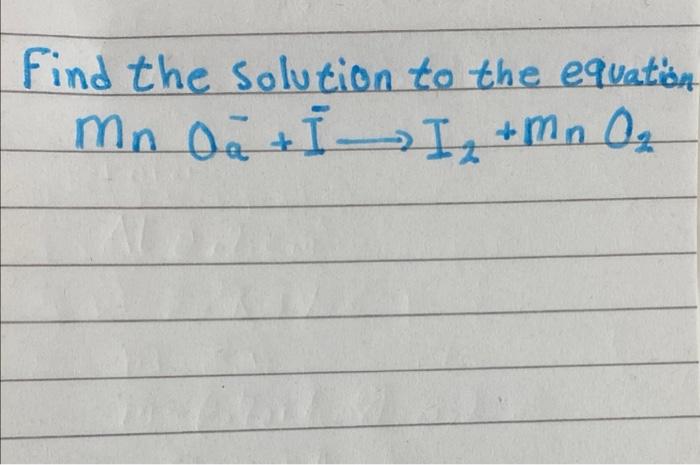 Find the solution to the equation
Mn Oa⁻ + I⁻ → I₂ + Mn O₂